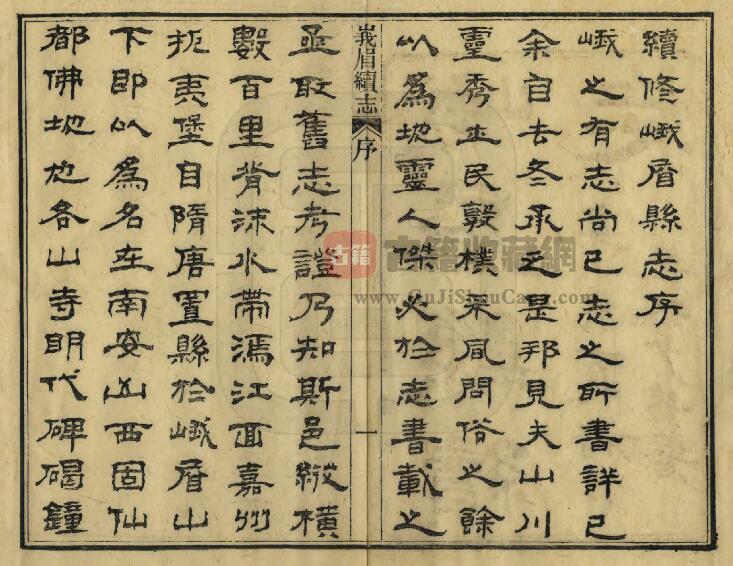 續修峨眉縣志序
峨之有志尚已志之所書詳已
余自去冬承乏是邦見夫山川
靈秀士民敦樸采風問俗之餘
以爲地靈人傑必於志書載之
峩眉續志 序 一
亟取舊志考證乃知斯邑縱橫
數百里背沫水帶濿江面嘉州
扼夷堡自隋唐置縣於峨眉山
下即以爲名在南安山西固仙
都佛地也各山寺明代碑碣鐘
古籍
古籍收藏網
www.GuJiShouCang.com